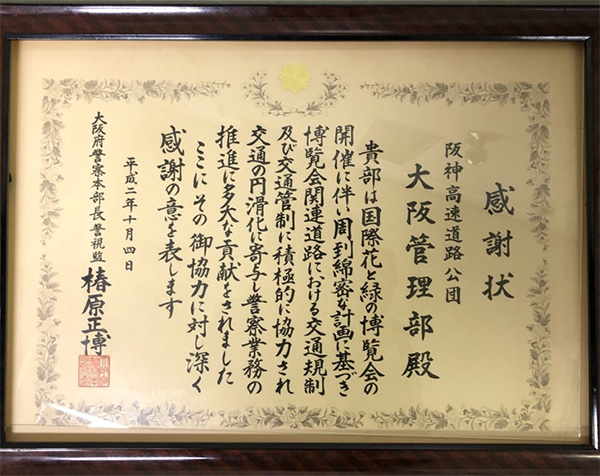 感謝状
阪神高速道路公団
大阪管理部殿
貴部は国際花と緑の博覧会の
開催に伴い周到綿密な計画に基づき
博覧会関連道路における交通規制
及び交通管制に積極的に協力され
交通の円滑化に寄与し警察業務の
推進に多大な貢献をされました
ここにその御協力に対し深く
感謝の意を表します
平成二年十月四日
大阪府警察本部長警視監
椿原正博